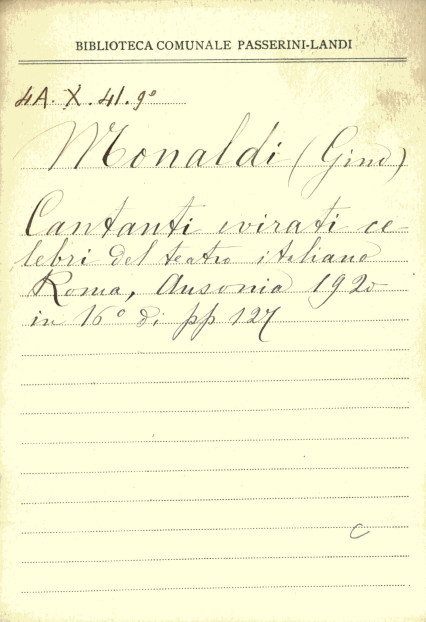 BIBLIOTECA COMUNALE PASSERINI-LANDI
4A. X. 41. 9°
Monaldi (Gino)
Cantanti evirati ce-
lebri del teatro italiano
Roma, Ausonia 1920
in 16° di pp 127
C